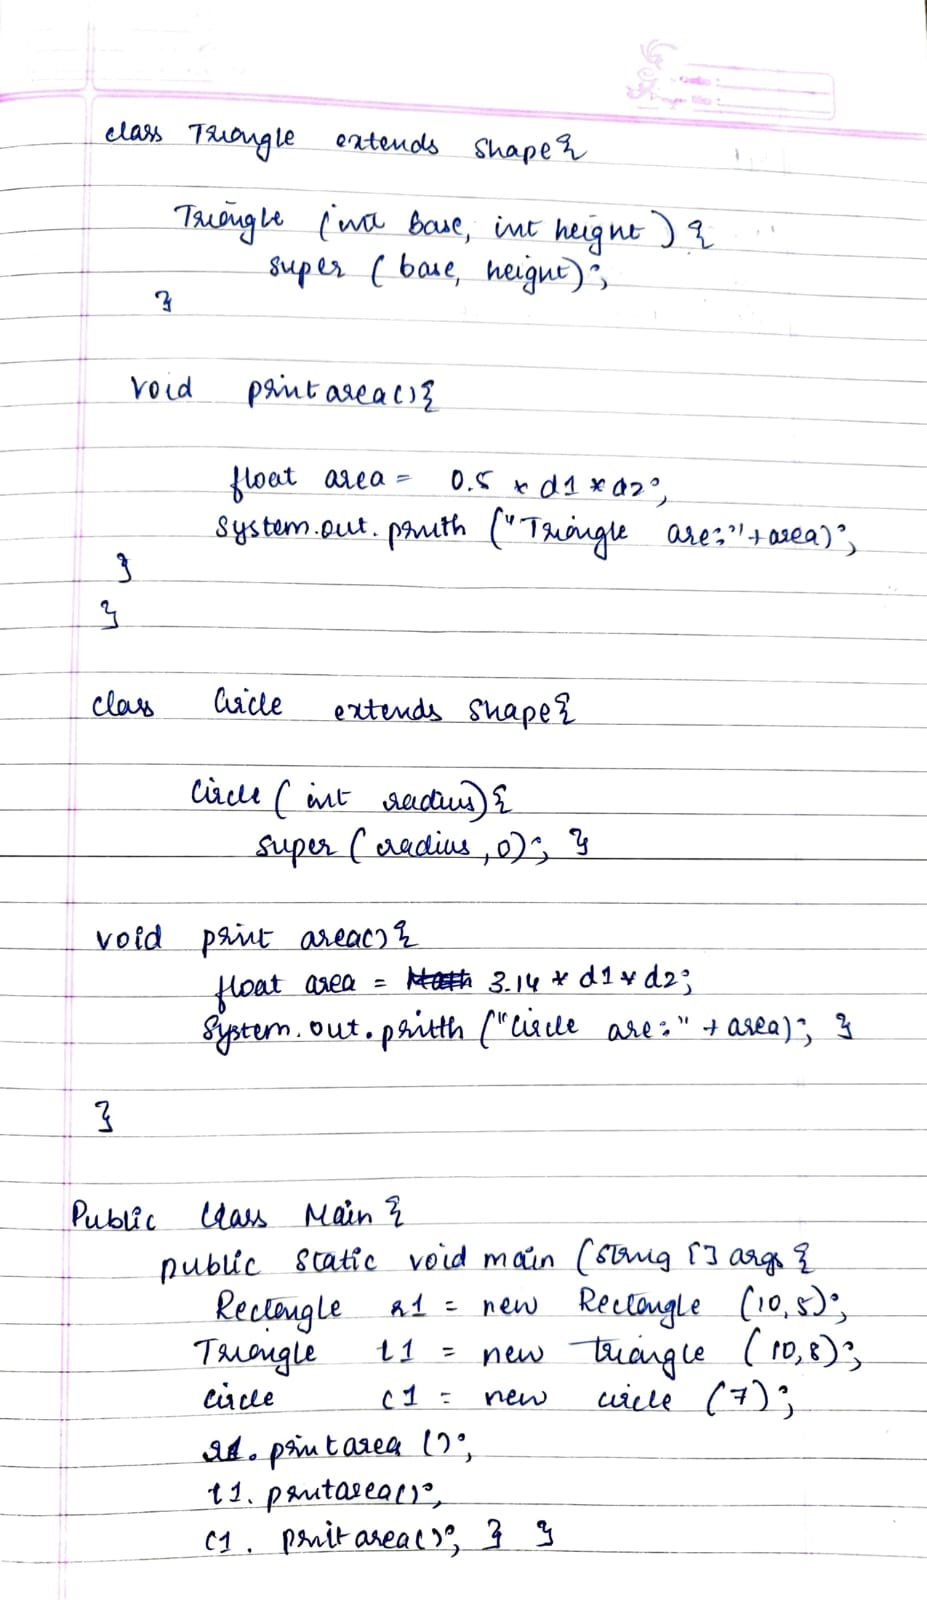 class Triangle extends shape{
Triangle (int base, int height) {
super (base, height);
}
void printarea(){
float area = 0.5 * d1 * d2;
System.out.println ("Triangle are:"+area);
}
}
class Circle extends shape{
Circle (int radius) {
super (radius, 0); }
void print area() {
float area = 3.14 * d1 * d2;
System.out.println ("Circle are:" + area); }
}
Public Class Main {
public static void main (String [] args {
Rectangle r1 = new Rectangle (10,5);
Triangle t1 = new triangle (10,8);
circle c1 = new circle (7);
r1. printarea ();
t1. printarea();
c1. printarea(); } }